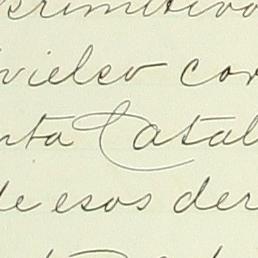 primitivo
vielso con
nta Catal
de esos der